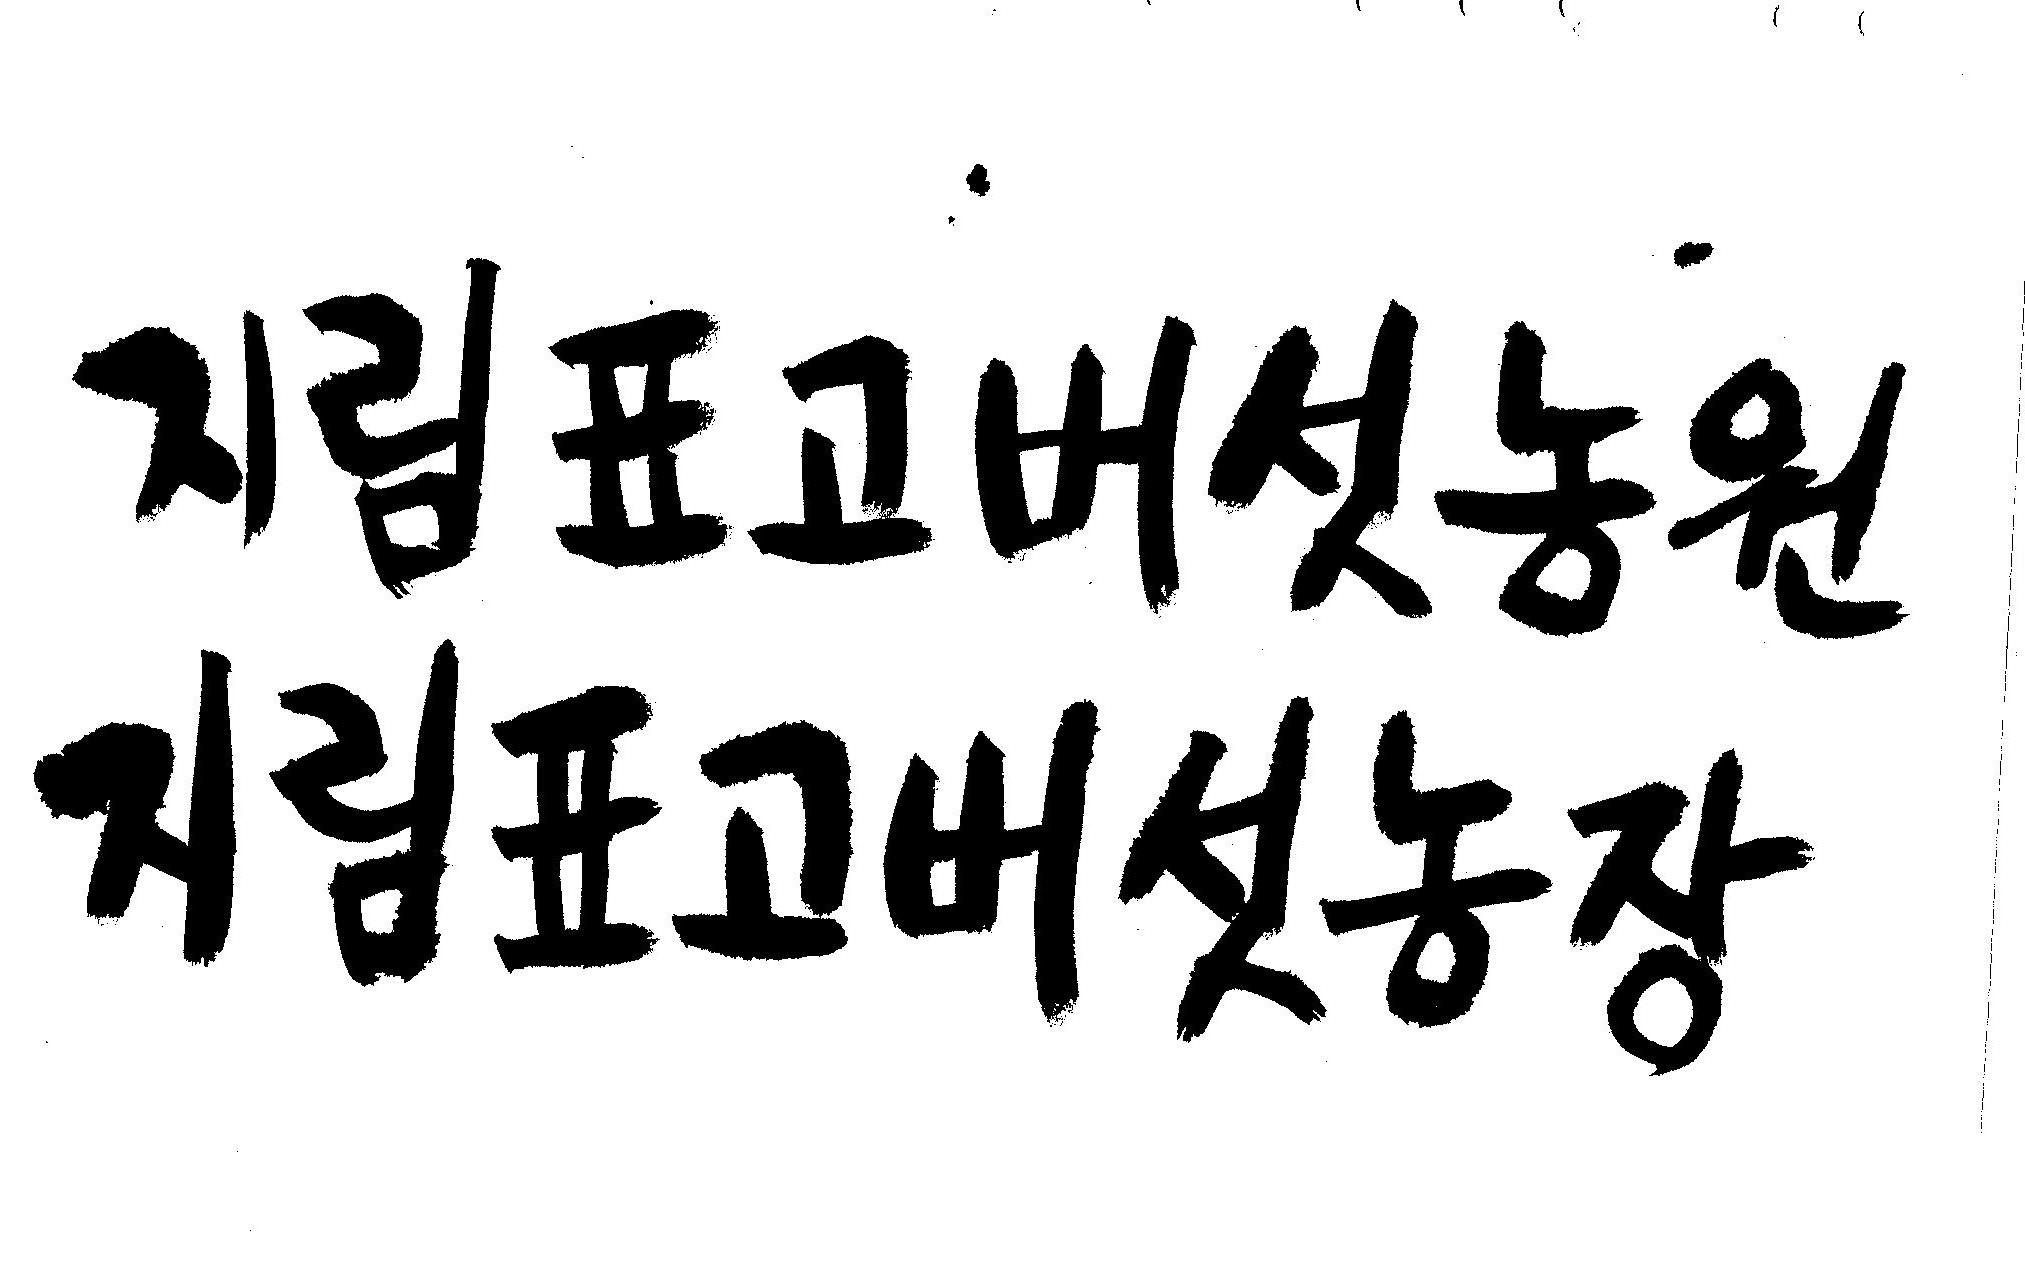 지림표고버섯농원
지림표고버섯농장